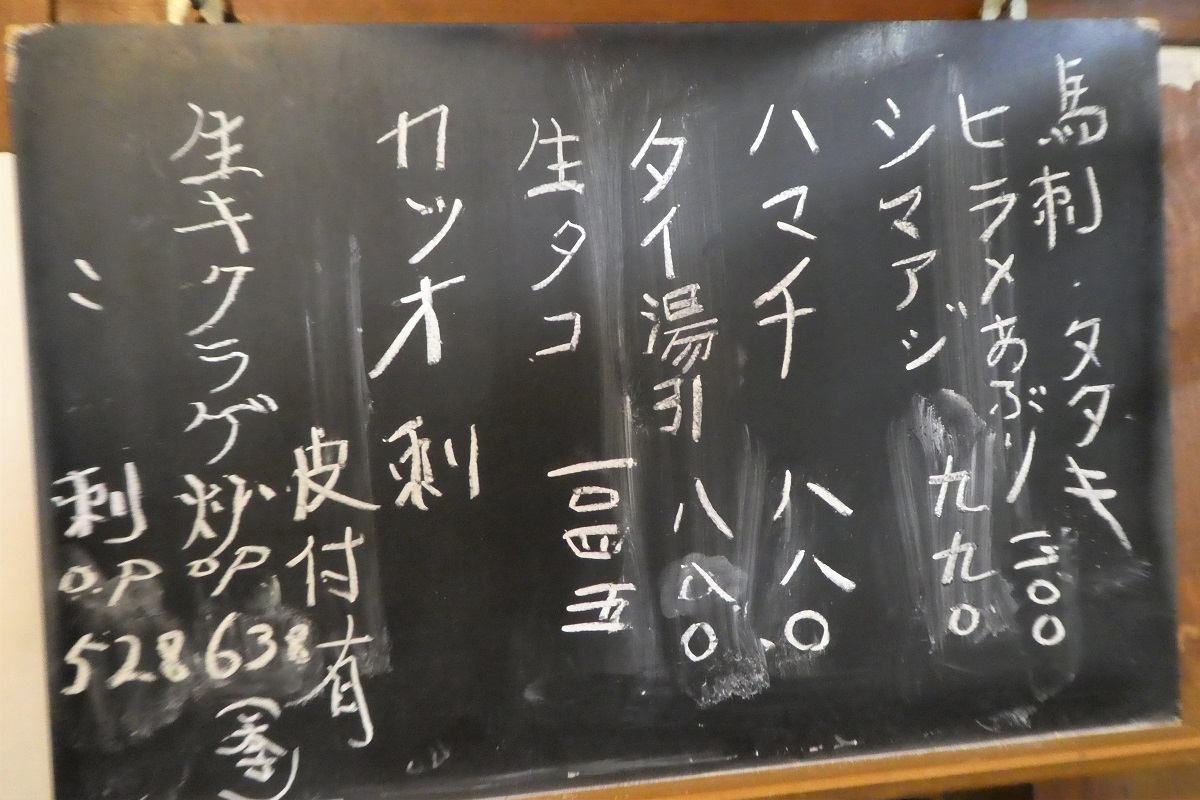 馬刺・タタキ
ヒラメあぶり
シマアジ 九九〇
ハマチ 八八〇
タイ湯引 八八〇
生タコ 一〇四五
カツオ刺
皮付有
生キクラゲ炒 O.P 638
〃 刺 O.P 528